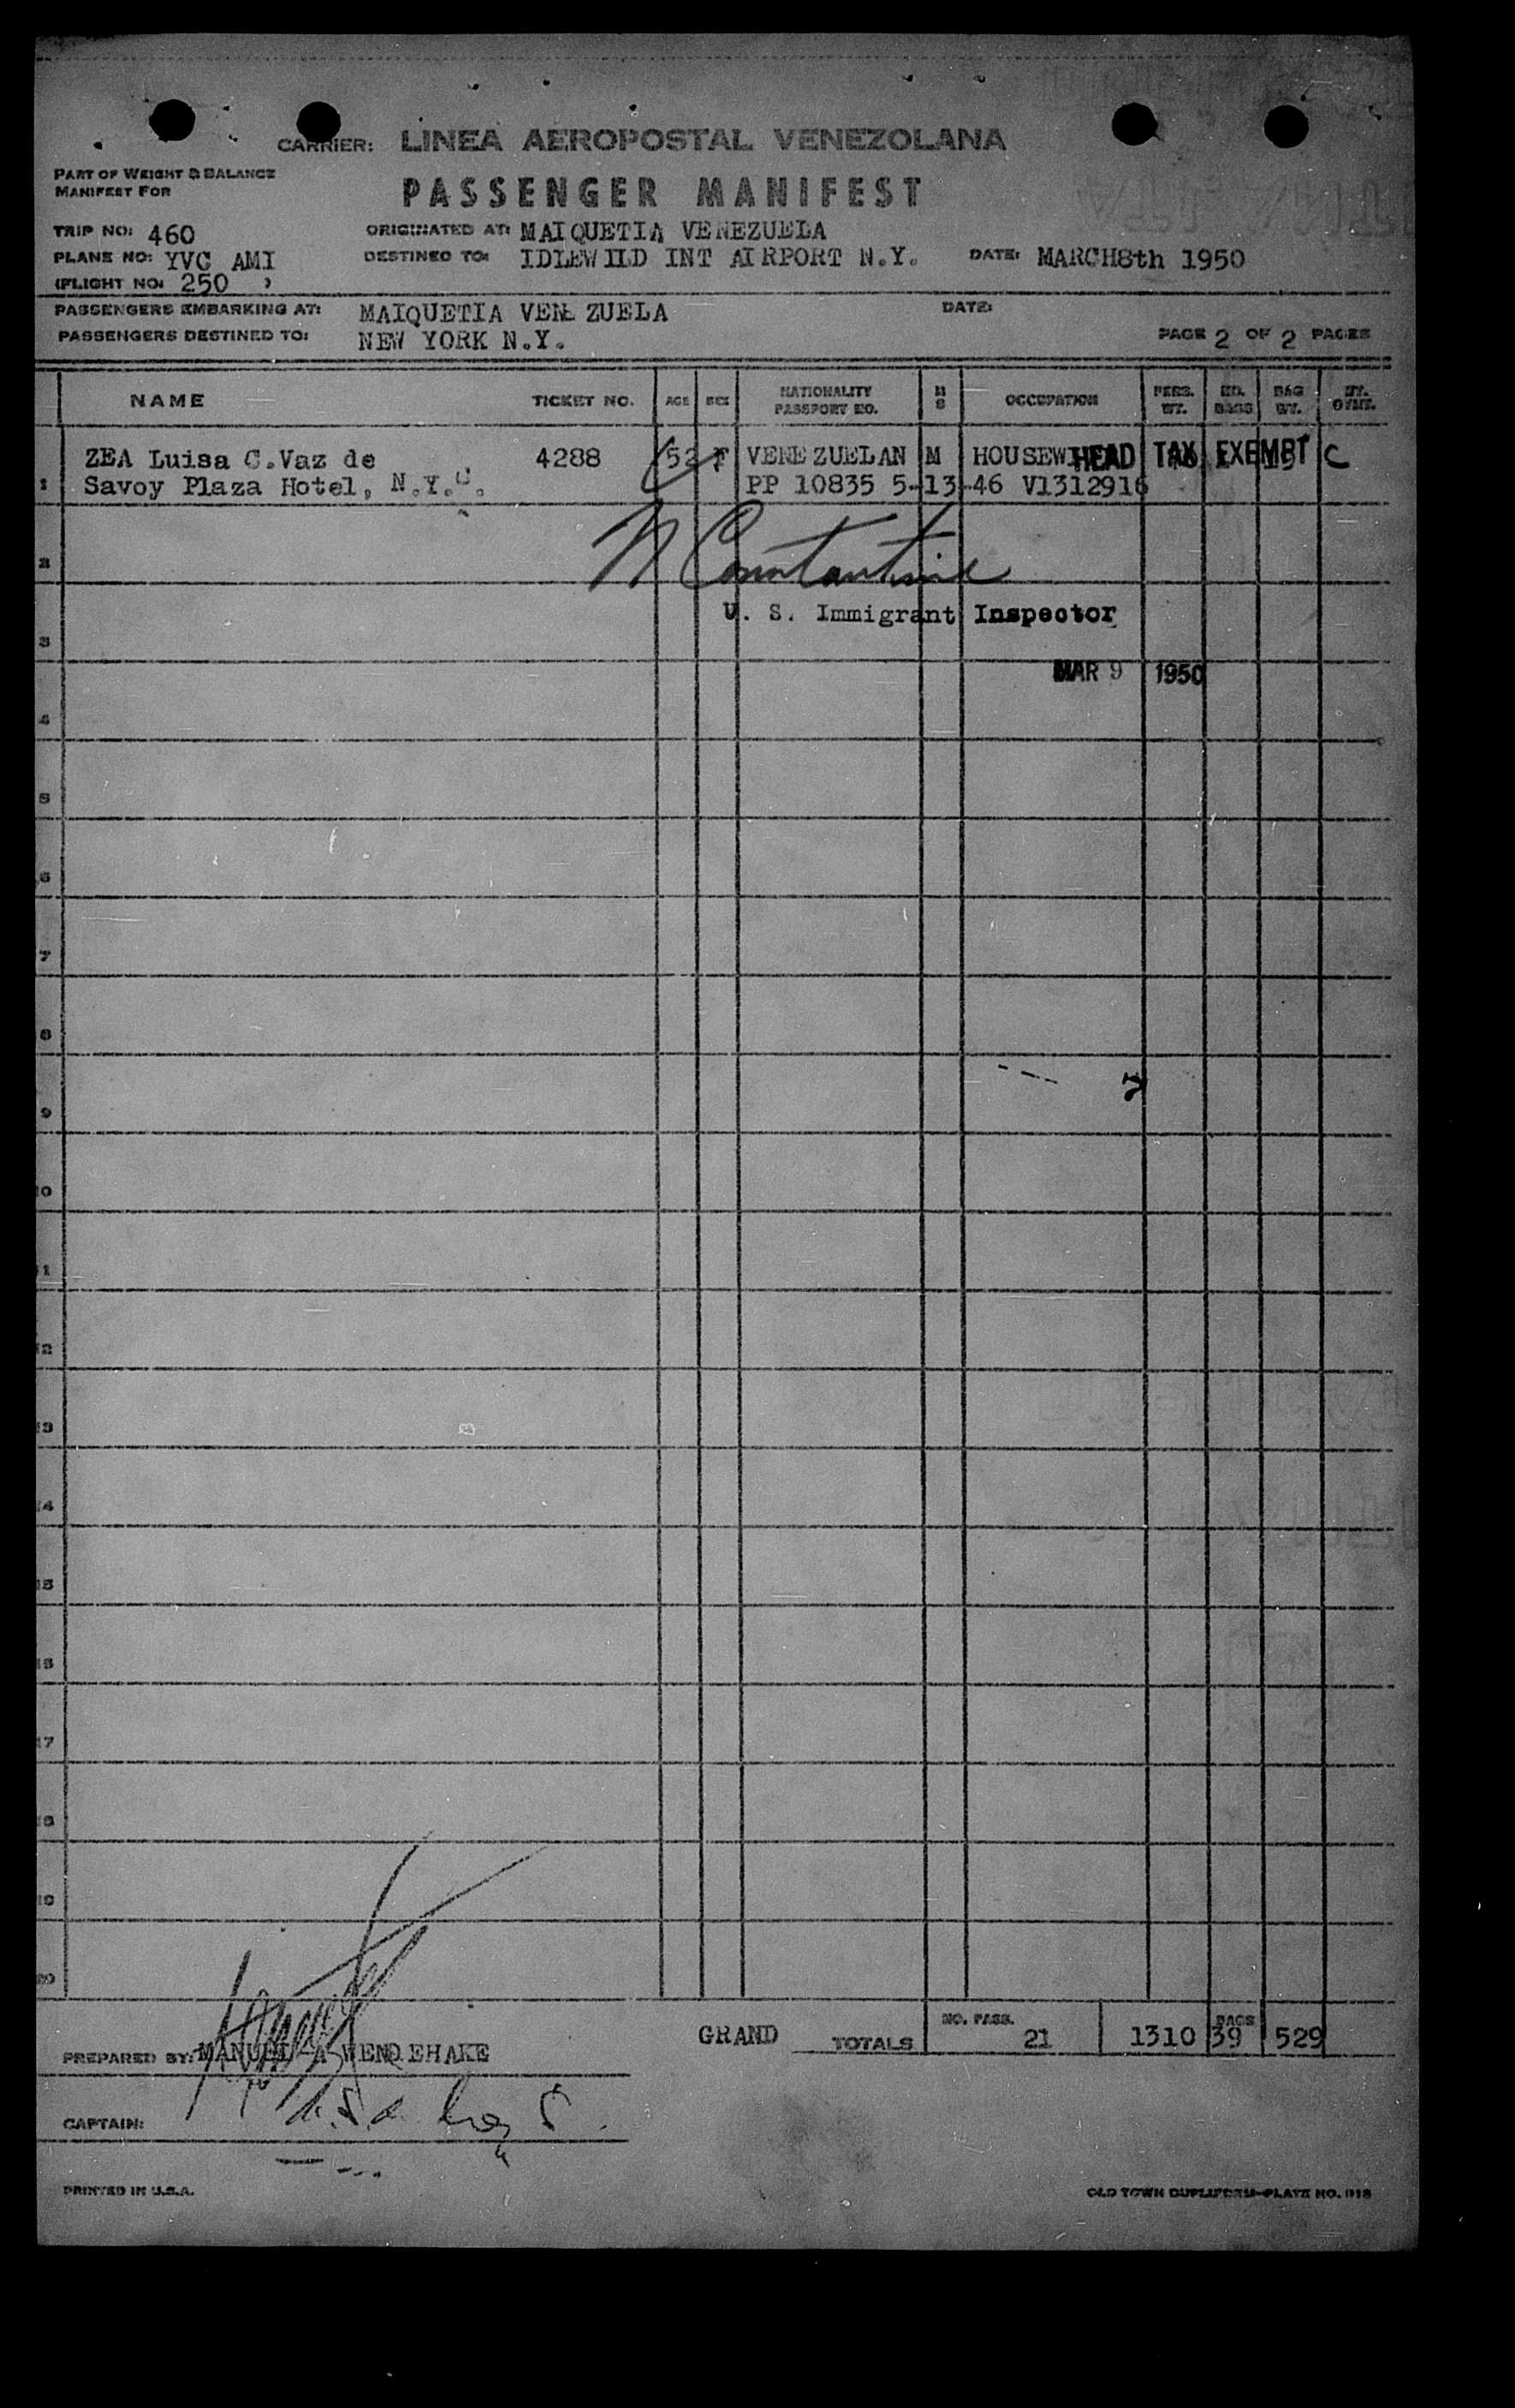 CARRIER: LINEA AEROPOSTAL VENEZOLANA
PART OF WEIGHT & BALANCE
MANIFEST FOR
PASSENGER MANIFEST
TRIP NO: 460
ORIGINATED AT: MAIQUETIA VENEZUELA
PLANE NO: YVC AMI
DESTINED TO: IDLEWILD INT AIRPORT N.Y. DATE: MARCH8th 1950
(FLIGHT NO: 250 )
PASSENGERS EMBARKING AT: MAIQUETIA VENE ZUELA DATE:
PASSENGERS DESTINED TO: NEW YORK N.Y. PAGE 2 OF 2 PAGES
NAME TICKET NO. AGE SEX NATIONALITY PASSPORT NO. M S OCCUPATION PERS. WT. NO. BAGS BAG WT.
1 ZEA Luisa C.Vaz de 4288 52 F VENEZUELAN M HOUSEWI HEAD TAX EXEMPT C
Savoy Plaza Hotel, N.Y.C. PP 10835 5-13-46 V1312916
2 N Constantine
U. S. Immigrant Inspector
3
MAR 9 1950
4
5
6
7
8
9
10
11
12
13
14
15
16
17
18
19
20
GRAND TOTALS NO. PASS. 21 1310 BAGS 39 529
PREPARED BY: MANUEL A WENDEHAKE
CAPTAIN:
PRINTED IN U.S.A. OLD TOWN DUPLIFORM-PLATE NO.